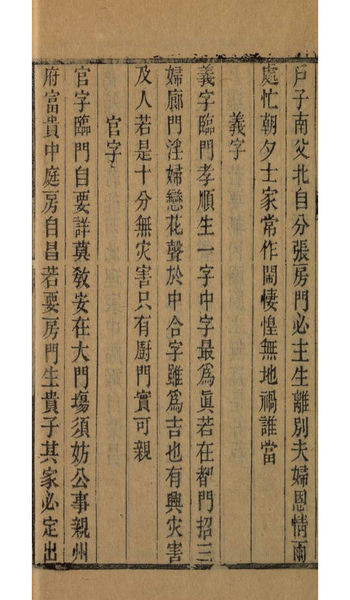 戶子南父北自分張房門必主生離別夫婦恩情兩
處忙朝夕士家常作鬧悽惶無地禍誰當
義字
義字臨門孝順生一字中字最為眞若在都門招三
婦廊門淫婦戀花聲於中合字雖為吉也有興灾害
及人若是十分無灾害只有厨門實可親
官字
官字臨門自要詳莫教安在大門塲須妨公事親州
府富貴中庭房自昌若要房門生貴子其家必定出